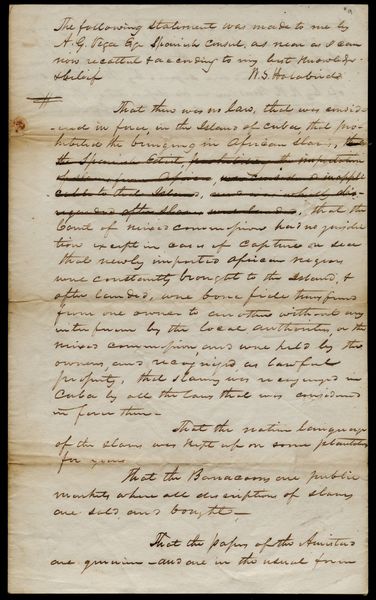 The following statement was made to me by
A. G. Vega Esqr Spanish Consul, as near as I can
now recollect & according to my best knowledge
& belief W. S. Holabird
That there was no law, that was consid-
ered in force, in the Island of Cuba, that pro-
hibited the bringing in African slaves, that
the Spanish
that the
Court of mixed commissions had no jurisdic-
tion except in cases of capture on sea
that newly imported African negroes
were constantly brought to the Island, &
after landed, were bona fide transferred
from one owner to another without any
interference by the local authorities, or the
mixed commission, and were held by the
owners, and recognized as lawful
property, that slavery was recognized in
Cuba by all the laws that was considered
in force there—
That the native language
of the slaves was kept up on some plantations
for years
That the Barracoons are public
markets where all description of slaves
are sold, and bought—
That the papers of the Amistad
are genuine—and are in the usual form